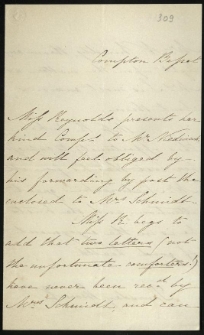 309
Compton Rd
Miss Reynolds presents her
kind Compts. to Mr.
and will feel obliged by
his forwarding by post the
enclosed to Mrs Schmidt.
Miss R begs to
add that two letters (not
the unfortunate comforters!)
have never been recd. by
Mrs Schmidt, and can